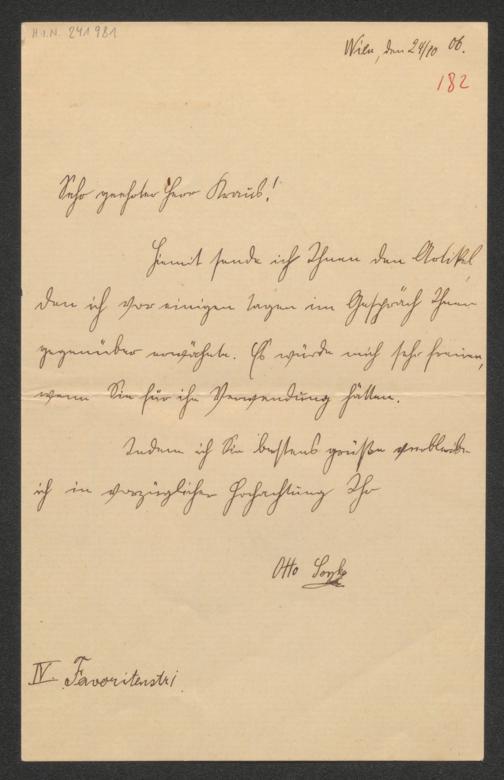 H.I.N. 241981
Wien, den 24/10 06.
182
Sehr geehrter Herr Kraus!
Hiemit sende ich Ihnen den Artikel,
den ich vor einigen Tagen im Gespräch Ihnen
gegenüber erwähnte. Es würde mich sehr freuen,
wenn Sie für ihn Verwendung hätten.
Indem ich Sie bestens grüße verbleibe
ich in vorzüglicher Hochachtung Ihr
Otto Soyka
IV. Favoritenstr.